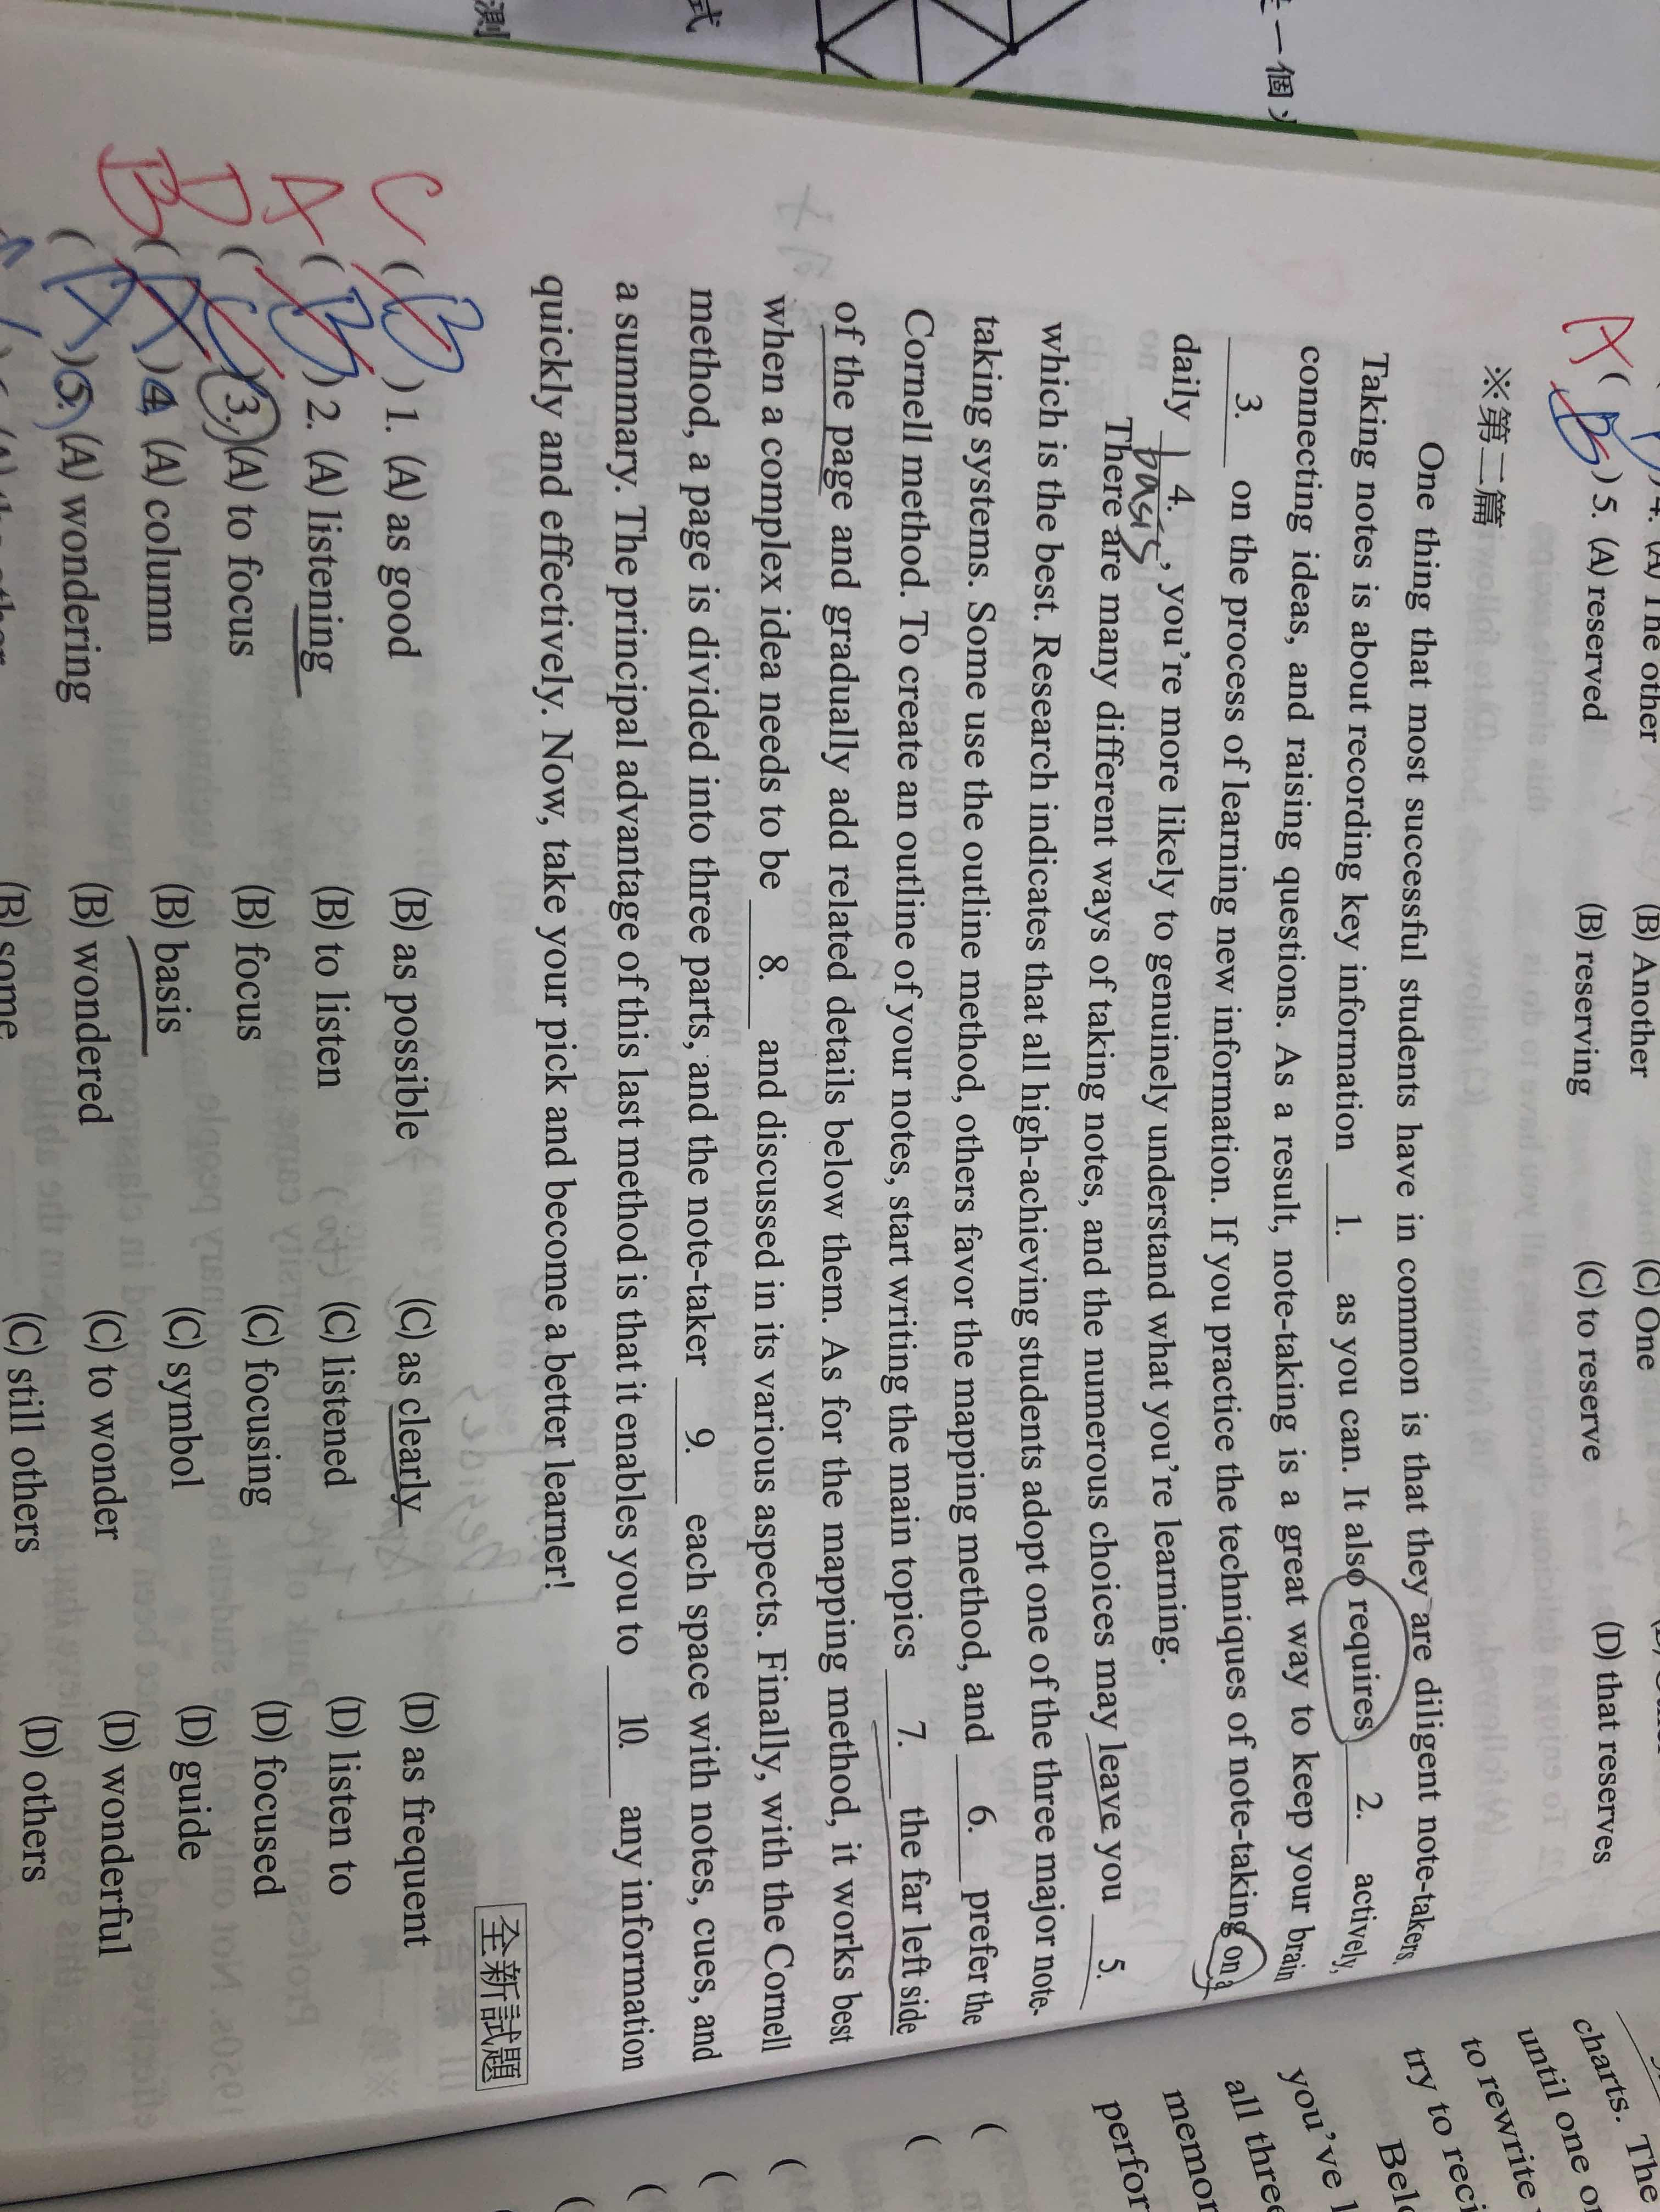 測
式
一個
4. (A) The other (B) Another (C) One
A ( B ) 5. (A) reserved (B) reserving (C) to reserve (D) that reserves
※第二篇
One thing that most successful students have in common is that they are diligent note-takers.
Taking notes is about recording key information 1. as you can. It also requires 2. actively,
connecting ideas, and raising questions. As a result, note-taking is a great way to keep your brain
3. on the process of learning new information. If you practice the techniques of note-taking on a
daily 4. , you're more likely to genuinely understand what you're learning.
basis
There are many different ways of taking notes, and the numerous choices may leave you 5.
which is the best. Research indicates that all high-achieving students adopt one of the three major note-
taking systems. Some use the outline method, others favor the mapping method, and 6. prefer the
Cornell method. To create an outline of your notes, start writing the main topics 7. the far left side
of the page and gradually add related details below them. As for the mapping method, it works best
when a complex idea needs to be 8. and discussed in its various aspects. Finally, with the Cornell
method, a page is divided into three parts, and the note-taker 9. each space with notes, cues, and
a summary. The principal advantage of this last method is that it enables you to 10. any information
quickly and effectively. Now, take your pick and become a better learner!
全新試題
C ( B ) 1. (A) as good (B) as possible (C) as clearly (D) as frequent
A ( B ) 2. (A) listening (B) to listen (C) listened (D) listen to
D ( C ) 3. (A) to focus (B) focus (C) focusing (D) focused
B ( A ) 4. (A) column (B) basis (C) symbol (D) guide
( A ) 5. (A) wondering (B) wondered (C) to wonder (D) wonderful
(B) some (C) still others (D) others
charts. The
until one
to rewrite
try to
you've
all three